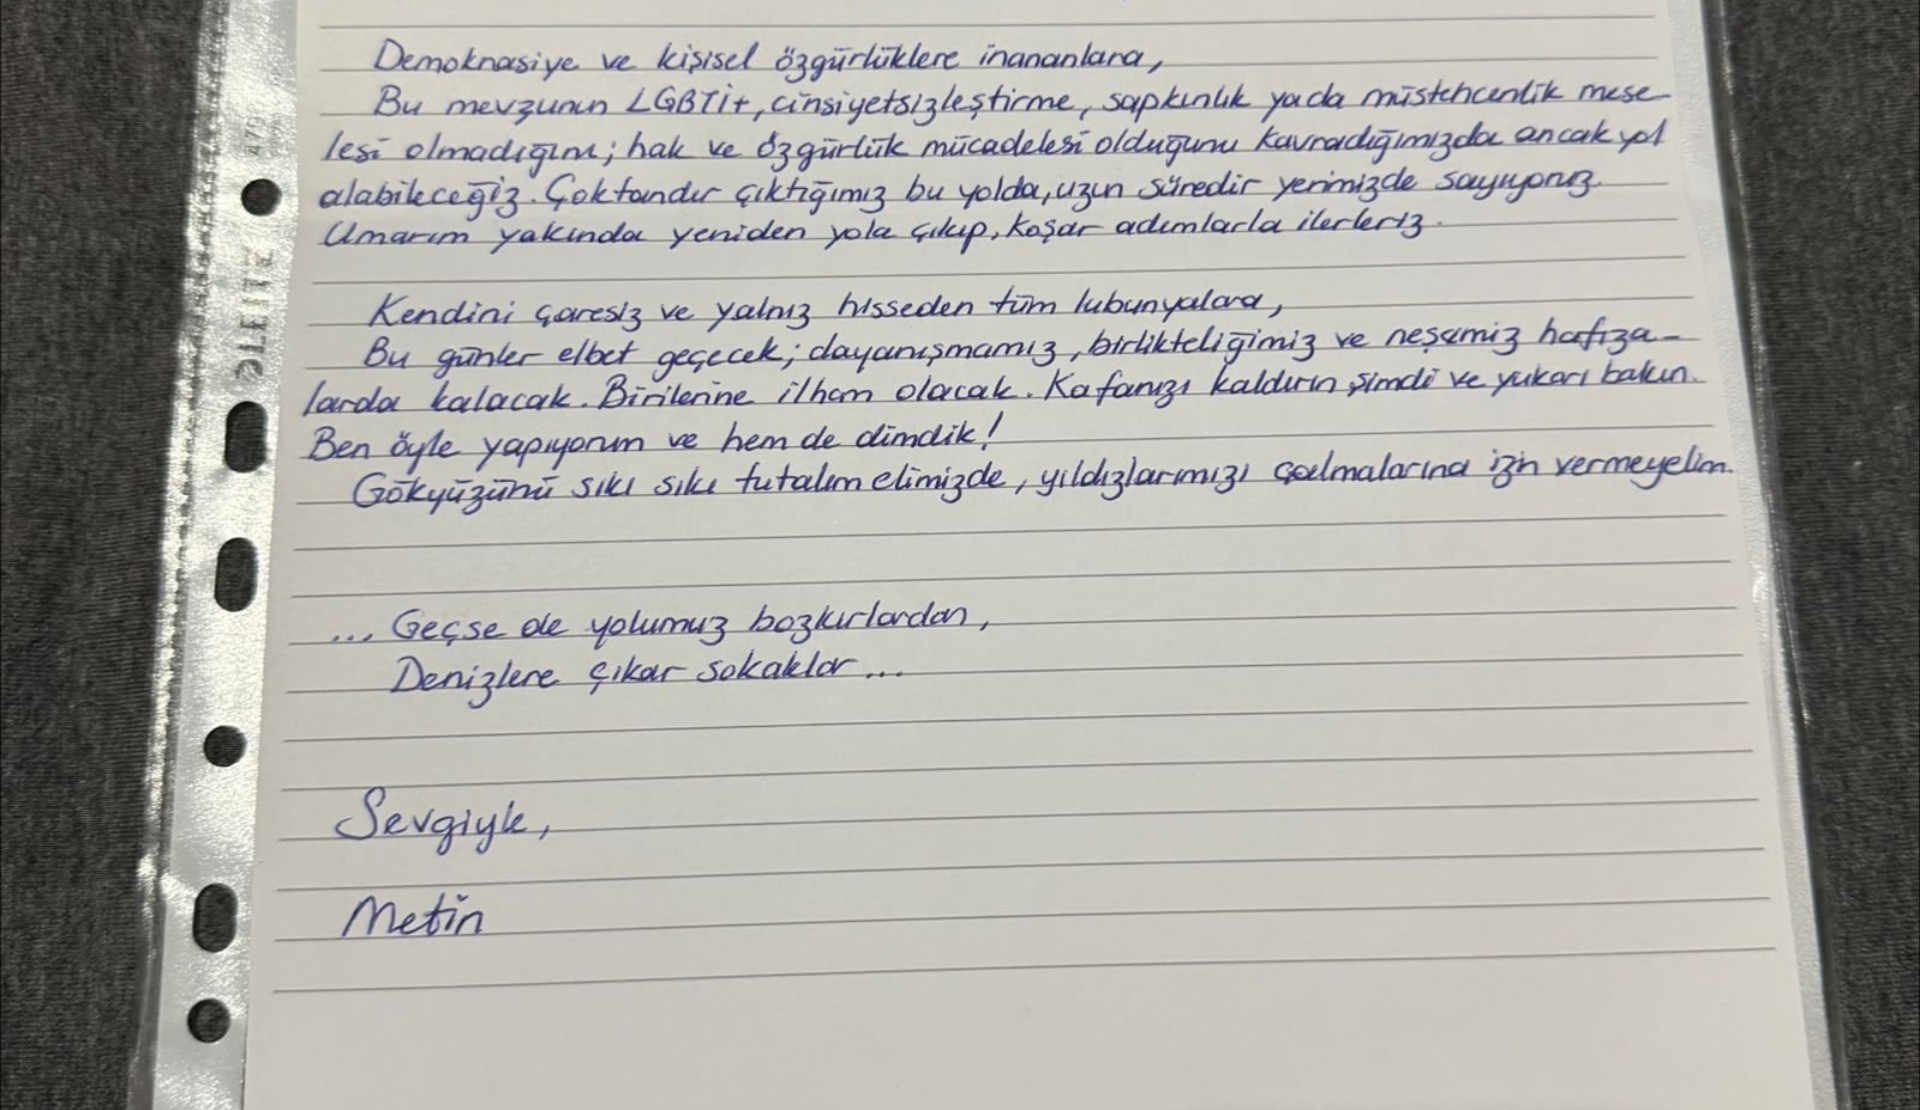 Demokrasiye ve kişisel özgürlüklere inananlara,
Bu mevzunun LGBTİ+, cinsiyetsizleştirme, sapkınlık yada müstehcenlik mese-
lesi olmadığını; hak ve özgürlük mücadelesi olduğunu kavradığımızda ancak yol
alabileceğiz. Çoktandır çıktığımız bu yolda, uzun süredir yerimizde sayıyoruz.
Umarım yakında yeniden yola çıkıp, koşar adımlarla ilerleriz.
Kendini çaresiz ve yalnız hisseden tüm lubunyalara,
Bu günler elbet geçecek; dayanışmamız, birlikteliğimiz ve neşemiz hafıza-
larda kalacak. Birilerine ilham olacak. Kafanızı kaldırın şimdi ve yukarı bakın.
Ben öyle yapıyorum ve hem de dimdik!
Gökyüzünü sıkı sıkı tutalım elimizde, yıldızlarımızı çalmalarına izin vermeyelim.
... Geçse de yolumuz bozkırlardan,
Denizlere çıkar sokaklar...
Sevgiyle,
Metin